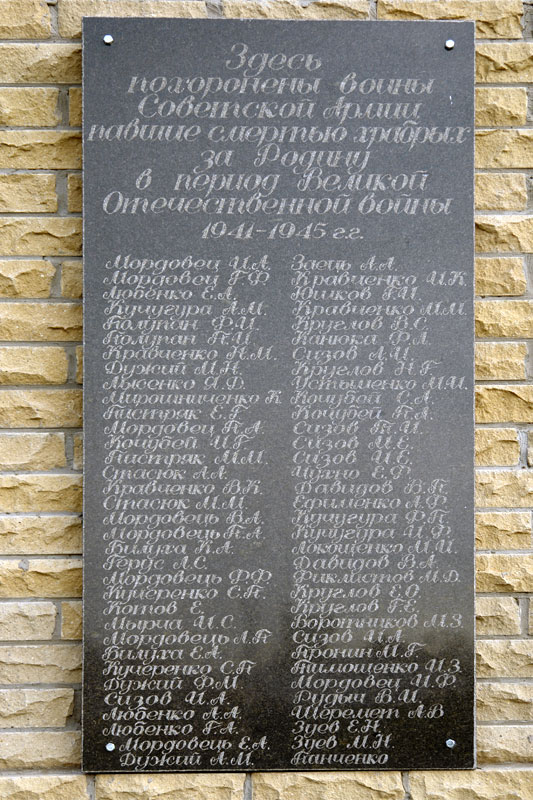 Здесь
похоронены воины
Советской Армии
павшие смертью храбрых
за Родину
в период Великой
Отечественной войны
1941-1945 г.г.
Мордовец И.А.
Мордовец Г.Ф.
Любенко Е.А.
Кучугура А.М.
Полупан Ф.И.
Полупан П.И.
Кравченко Н.М.
Дужий М.Н.
Лысенко Я.Д.
Мирошниченко К.
Пистряк Е.Г.
Мордовец П.А.
Кочубей И.Г.
Пистряк М.М.
Стасюк А.А.
Кравченко В.К.
Стасюк М.М.
Мордовець В.А.
Мордовець Н.А.
Билуха К.А.
Гердс А.С.
Мордовець Ф.Ф.
Кучеренко С.П.
Котов Е.
Мырча И.С.
Мордовець Л.П
Билуха Е.А.
Кучеренко С.П
Дужий Ф.М
Сизов И.А.
Любенко А.А.
Любенко Г.А.
Мордовець Е.А.
Дужий А.М.
Заець А.А.
Кравченко И.К.
Юшков Г.И.
Кравченко М.М.
Круглов В.С.
Канюка Ф.Л.
Сизов А.И.
Круглов Н.Г.
Устыменко М.И.
Кочубей С.А.
Кочубей П.А.
Сизов Т.И.
Сизов М.Е.
Сизов И.Е.
Чухно Е.Ф.
Давидов В.П.
Ефименко А.Ф.
Кучугура Ф.П.
Кучугура И.Ф.
Локощенко М.И.
Давидов В.А.
Фиклистов М.Д.
Круглов Е.О.
Круглов Г.Е.
Воротников М.З.
Сизов И.А.
Пронин М.Г.
Тимошенко И.З.
Мордовец И.Ф
Рудыч В.И.
Шеремет А.В
Зуев Е.Н.
Зуев М.Н.
Панченко